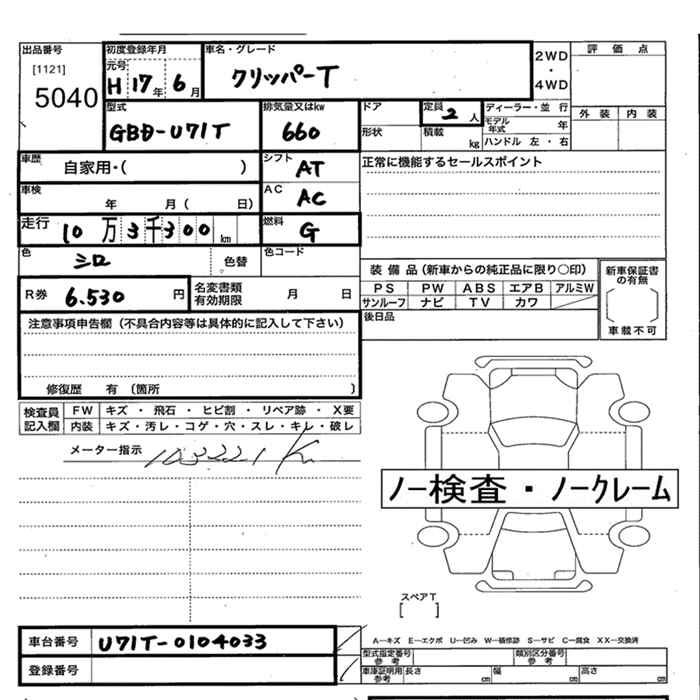 出品番号 初度登録年月 車名・グレード 2WD・4WD 評価点
[1121] 元号 H 17年 6月 クリッパーT
5040 外装 内装
型式 排気量又はkw ドア 定員 2人 ディーラー・並行
GBD-U71T 660 形状 積載 kg モデル年式 年
ハンドル 左・右
車歴 自家用・( ) シフト AT 正常に機能するセールスポイント
車検 年 月( 日) AC AC
走行 10万3千300km 燃料 G
色 シロ 色替 色コード
装備品(新車からの純正品に限り○印) 新車保証書の有無
R券 6.530円 名変書類有効期限 月 日 PS PW ABS エアB アルミW
サンルーフ ナビ TV カワ 車載不可
注意事項申告欄(不具合内容等は具体的に記入して下さい) 後日品
修復歴 有(箇所 )
検査員記入欄 FW キズ・飛石・ヒビ割・リペア跡・X要
内装 キズ・汚レ・コゲ・穴・スレ・キレ・破レ
メーター指示 103221K
ノー検査・ノークレーム
スペアT
[ ]
車台番号 U71T-0104033 A―キズ E―エクボ U―凹み W―補修跡 S―サビ C―腐食 XX―交換済
型式指定番号 参考 類別区分番号 参考
登録番号 車庫証明用参考 長さ cm 幅 cm 高さ cm